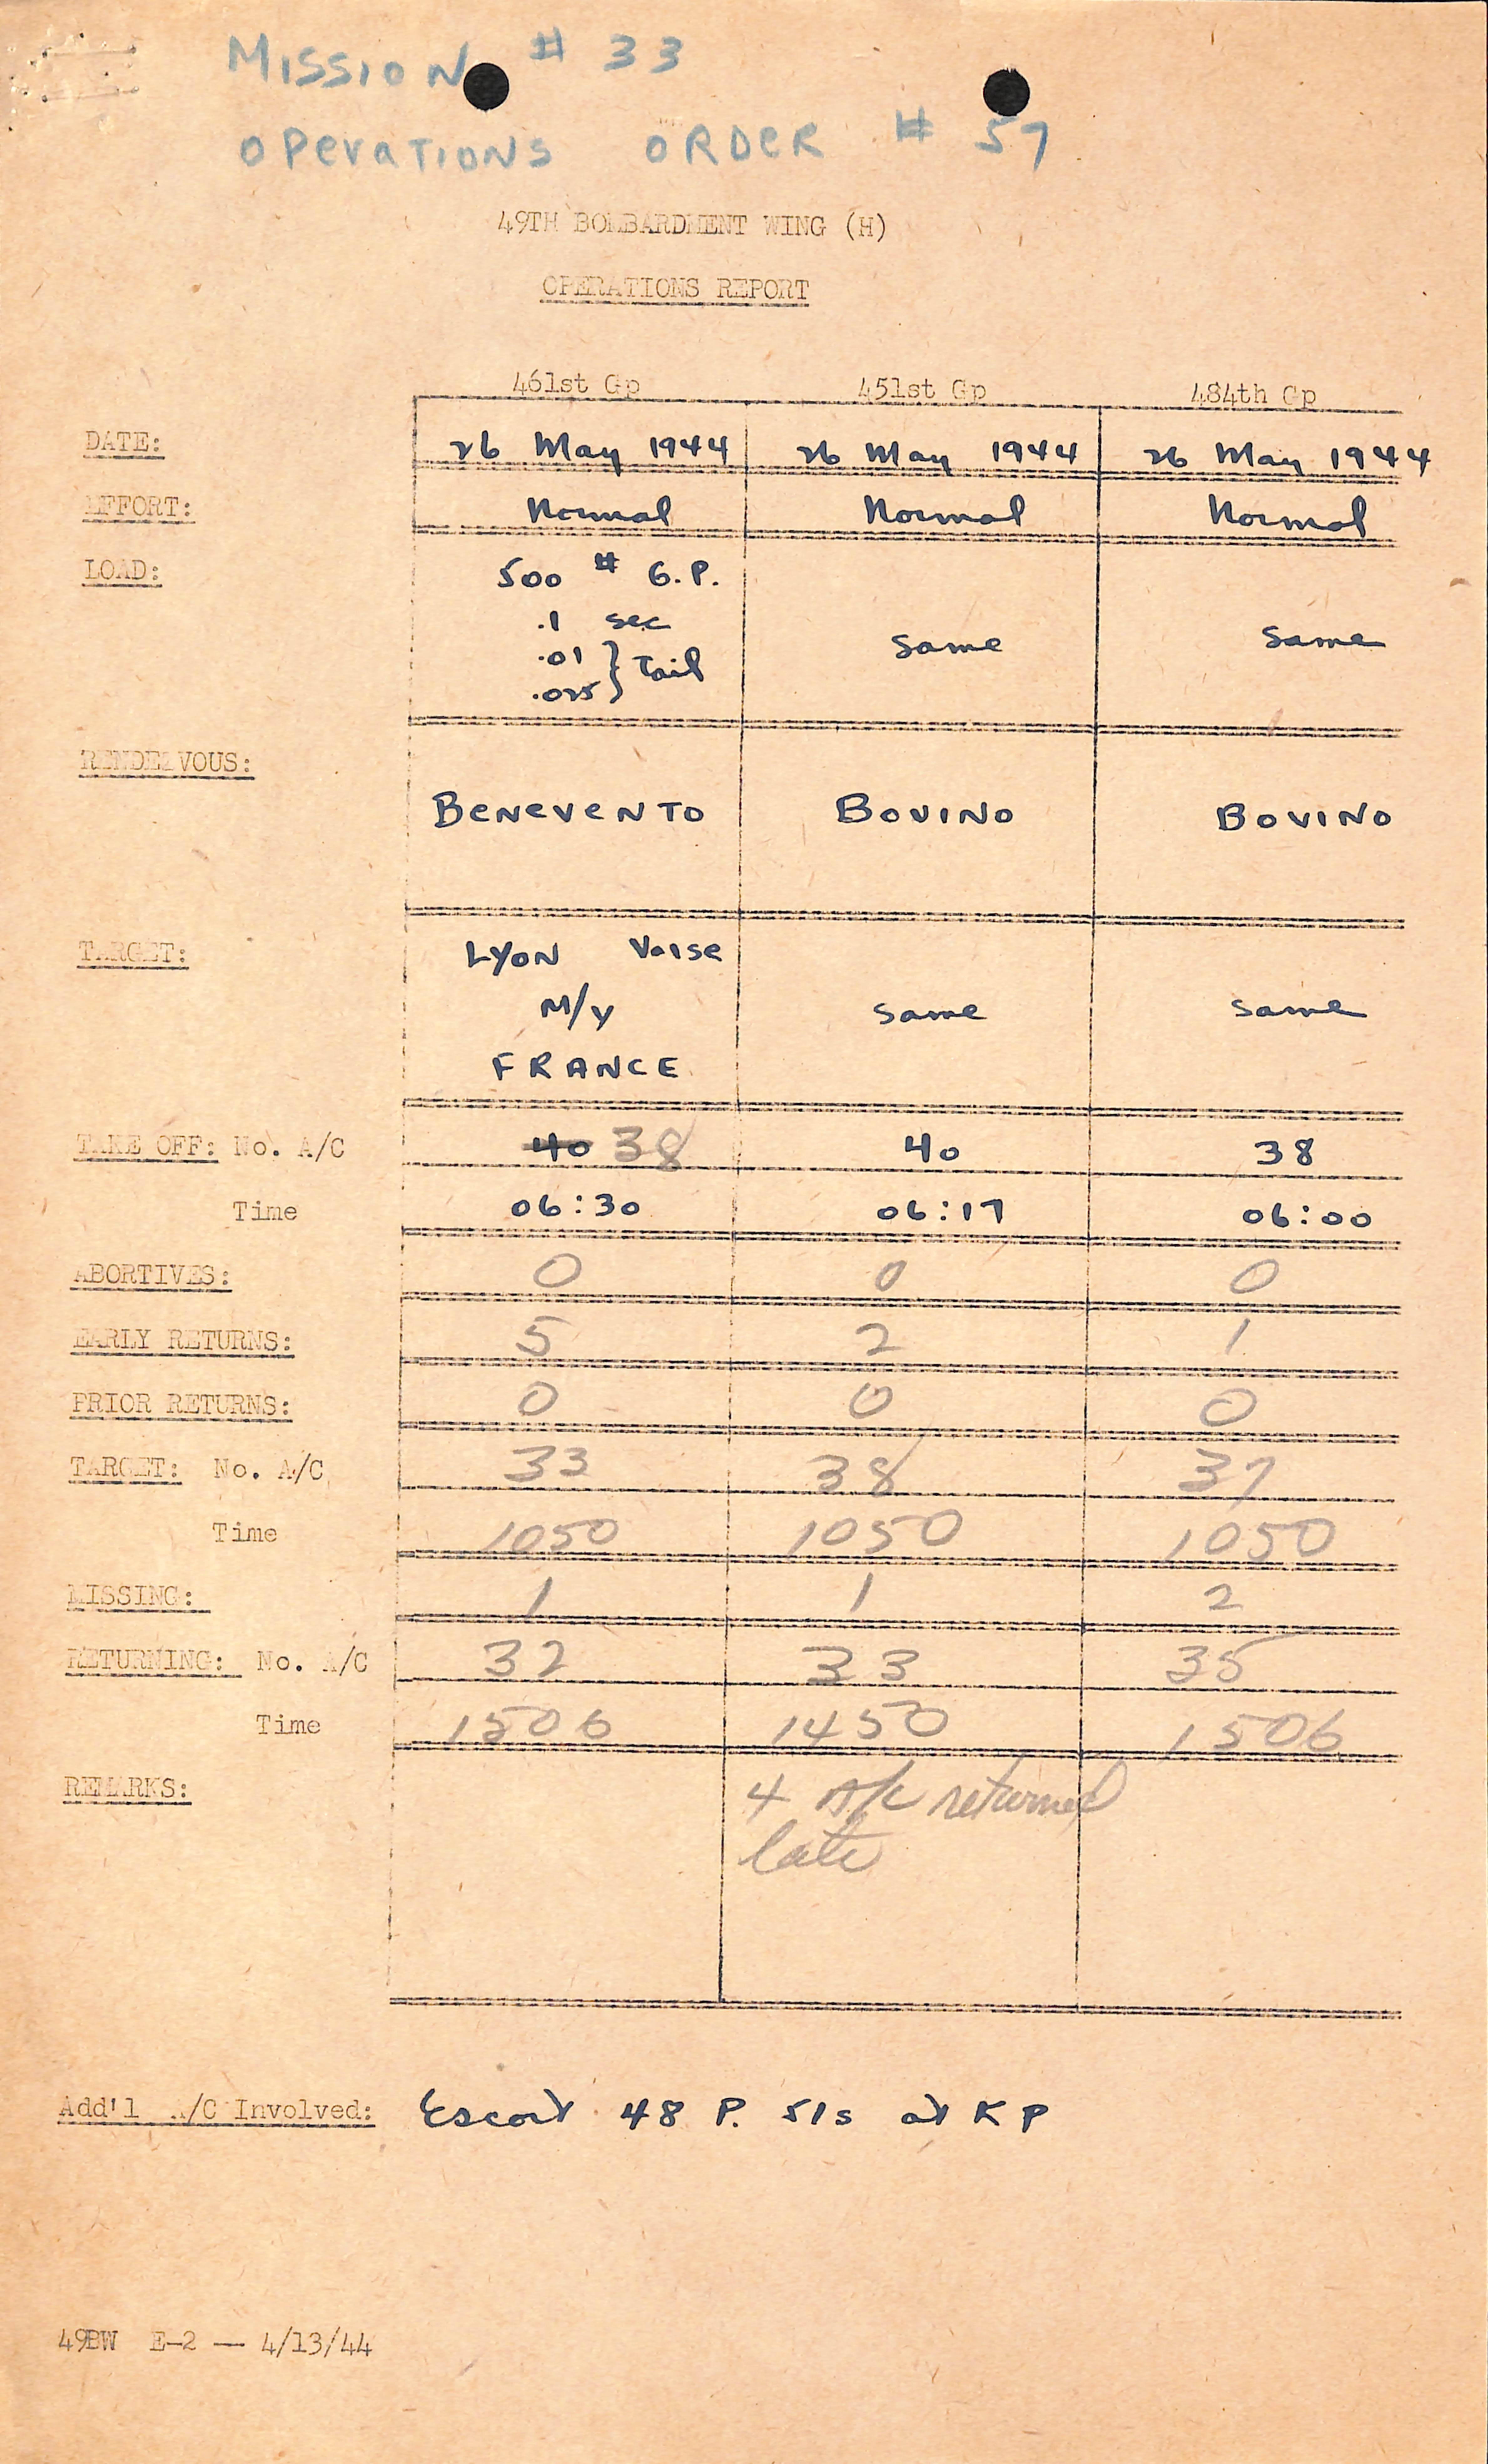 MISSION # 33
OPERATIONS ORDER # 57
49TH BOMBARDMENT WING (H)
OPERATIONS REPORT
461st Gp 451st Gp 484th Gp
DATE: 26 May 1944 26 May 1944 26 May 1944
EFFORT: Normal Normal Normal
LOAD: 500 # G.P.
.1 sec
.01 } Tail same same
.025
RENDEZVOUS:
BENEVENTO BOVINO BOVINO
TARGET: LYON Vaise
M/Y same same
FRANCE
TAKE OFF: No. A/C 40 38 40 38
Time 06:30 06:17 06:00
ABORTIVES: 0 0 0
EARLY RETURNS: 5 2 1
PRIOR RETURNS: 0 0 0
TARGET: No. A/C 33 38 37
Time 1050 1050 1050
MISSING: 1 1 2
RETURNING: No. A/C 32 33 35
Time 1506 1450 1506
REMARKS: 4 A/C returned
late
Add'l A/C Involved: Escort 48 P. 51s at KP
49BW E-2 — 4/13/44